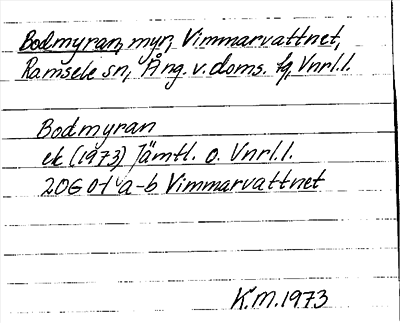 Bodmyran, myr, Vimmarvattnet,
Ramsele sn, Ång. v. doms. fg, Vnrl.l.
Bodmyran
ek (1973) Jämtl. o. Vnrl.l.
20G 0-1 a-b Vimmarvattnet
K.M. 1973